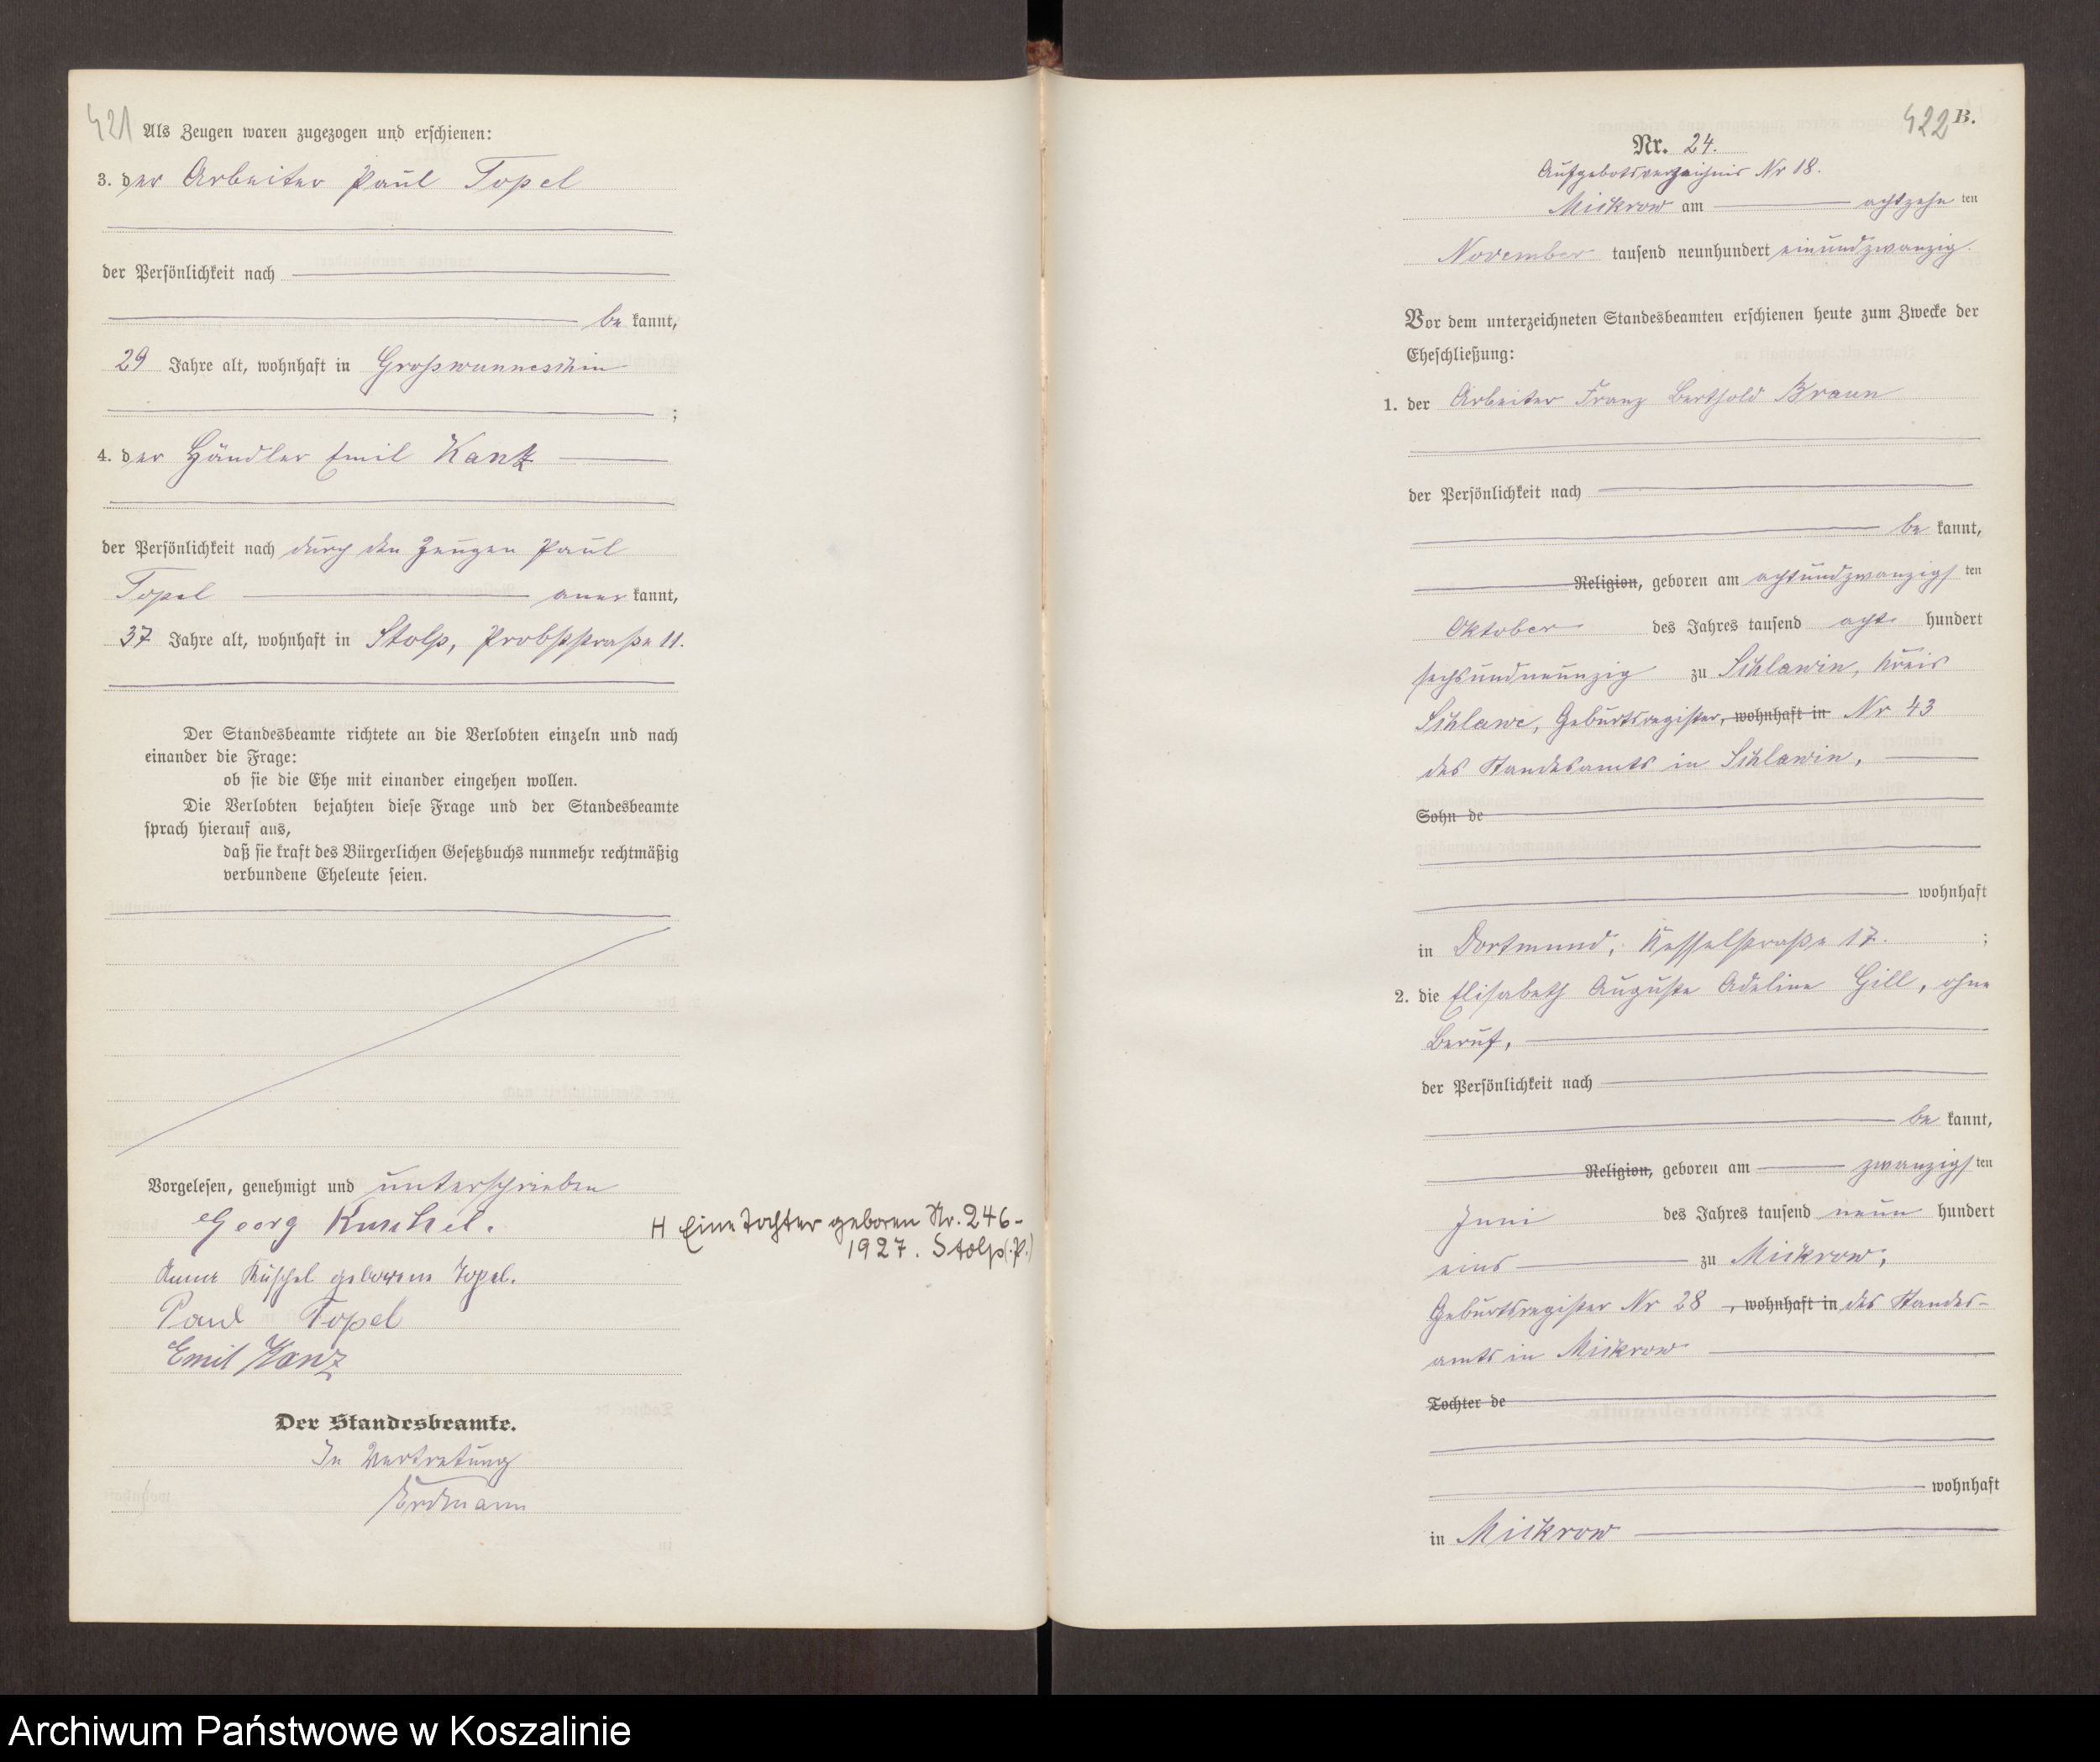 421
Als Zeugen waren zugezogen und erschienen:
3. der Arbeiter Paul Topel
der Persönlichkeit nach
be kannt,
29 Jahre alt, wohnhaft in Großwunneschin
;
4. der Händler Emil Kantz
der Persönlichkeit nach durch den Zeugen Paul
Topel aner kannt,
37 Jahre alt, wohnhaft in Stolp, Probststraße 11.
Der Standesbeamte richtete an die Verlobten einzeln und nach
einander die Frage:
ob sie die Ehe mit einander eingehen wollen.
Die Verlobten bejahten diese Frage und der Standesbeamte
sprach hierauf aus,
daß sie kraft des Bürgerlichen Gesetzbuchs nunmehr rechtmäßig
verbundene Eheleute seien.
Vorgelesen, genehmigt und unterschrieben
Georg
Anna Küschel geborene Topel.
Paul Topel
Emil Kanz
Der Standesbeamte.
In Vertretung
Erdmann
H Eine Tochter geboren Nr. 246-
1927. Stolp (:P.)
422 B.
Nr. 24.
Aufgebotsverzeichnis Nr 18.
Mickrow am achtzehn ten
November tausend neunhundert einundzwanzig.
Vor dem unterzeichneten Standesbeamten erschienen heute zum Zwecke der
Eheschließung:
1. der Arbeiter Franz Berthold Braun
der Persönlichkeit nach
be kannt,
Religion, geboren am achtundzwanzigs ten
Oktober des Jahres tausend acht hundert
sechsundneunzig zu Schlawin, Kreis
Schlawe, Geburtsregister, wohnhaft in Nr 43
des Standesamts in Schlawin,
Sohn de
wohnhaft
in Dortmund, Kesselstraße 17. ;
2. die Elisabeth Auguste Adeline Gill, ohne
Beruf,
der Persönlichkeit nach
be kannt,
Religion, geboren am zwanzigs ten
Juni des Jahres tausend neun hundert
eins zu Mickrow,
Geburtsregister Nr 28 , wohnhaft in des Standes-
amts in Mickrow
Tochter de
wohnhaft
in Mickrow
Archiwum Państwowe w Koszalinie